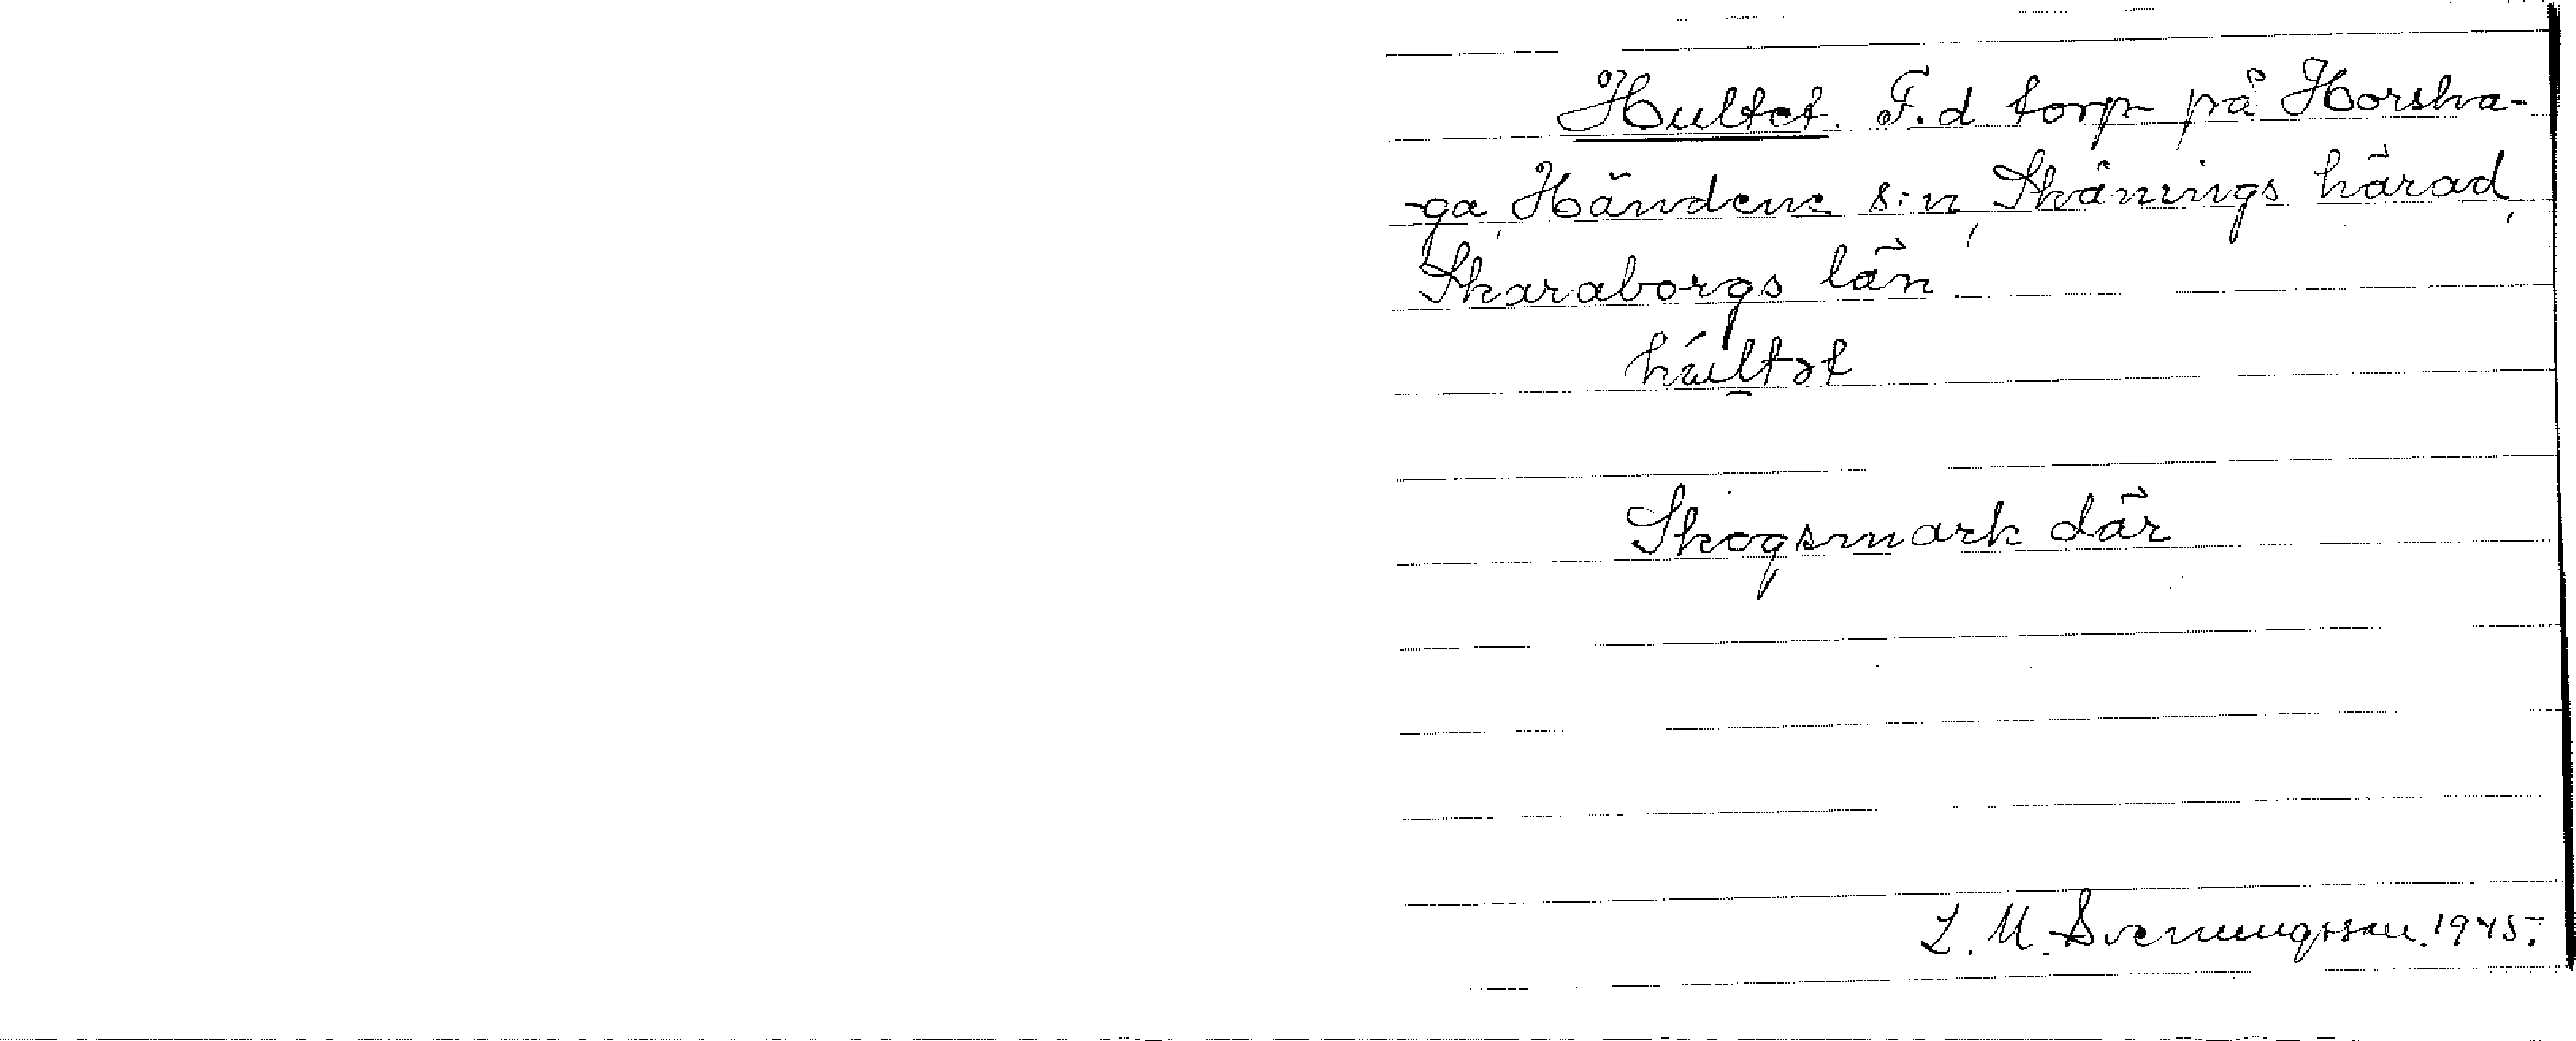 Hultet. F.d torp på Horsha-
-ga, Händene s:n, Skånings härad,
Skaraborgs län
húltət
Skogsmark där
L. M. Svenungsson. 1945.